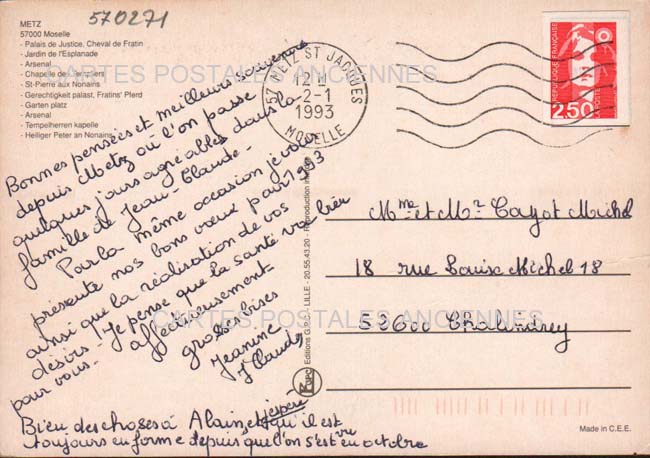 570271
METZ
57000 Moselle
- Palais de Justice, Cheval de Fratin
- Jardin de l'Esplanade
- Arsenal
- Chapelle des Templiers
- St-Pierre aux Nonains
- Gerechtigkeit palast, Fratins' Pferd
- Garten platz
- Arsenal
- Tempelherren kapelle
- Heiliger Peter an Nonains
57 METZ ST JACQUES
12 H
2-1
1993
MOSELLE
REPUBLIQUE FRANÇAISE
2,50
LA POSTE
CARTES POSTALES ANCIENNES
Bonnes pensées et meilleurs souvenirs
depuis Metz où l'on passe
quelques jours agréables dans la
famille de Jean-Claude -
Par la même occasion je vous
présente nos bons vœux pour 1993
ainsi que la réalisation de vos
désirs. Je pense que la santé va bien
pour vous.
affectueusement
grosses bises
Jeanine
J Claude
Bien des choses à Alain et j'espère qu'il est
toujours en forme depuis que l'on s'est vu en octobre
Mme et Mr Cayot Michel
18 rue Louise Michel 18
52600 Chalindrey
CARTES POSTALES ANCIENNES
Editions LILLE - 20.55.43.20 - Reproduction
Made in C.E.E.